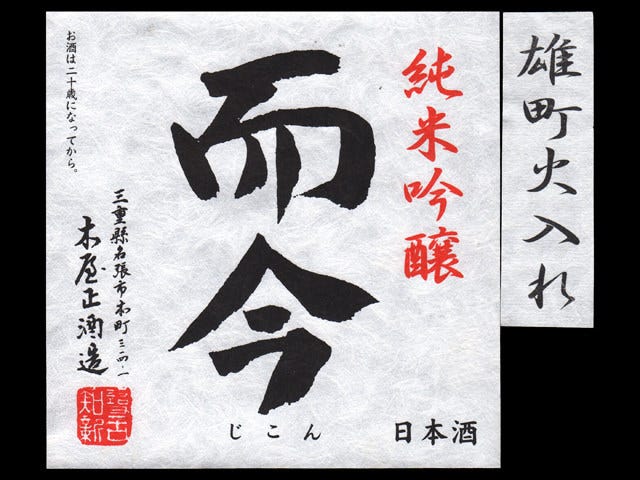 雄町火入れ
純米吟醸
而今
じこん
日本酒
三重縣名張市本町三一四・一
木屋正酒造
お酒は二十歳になってから。